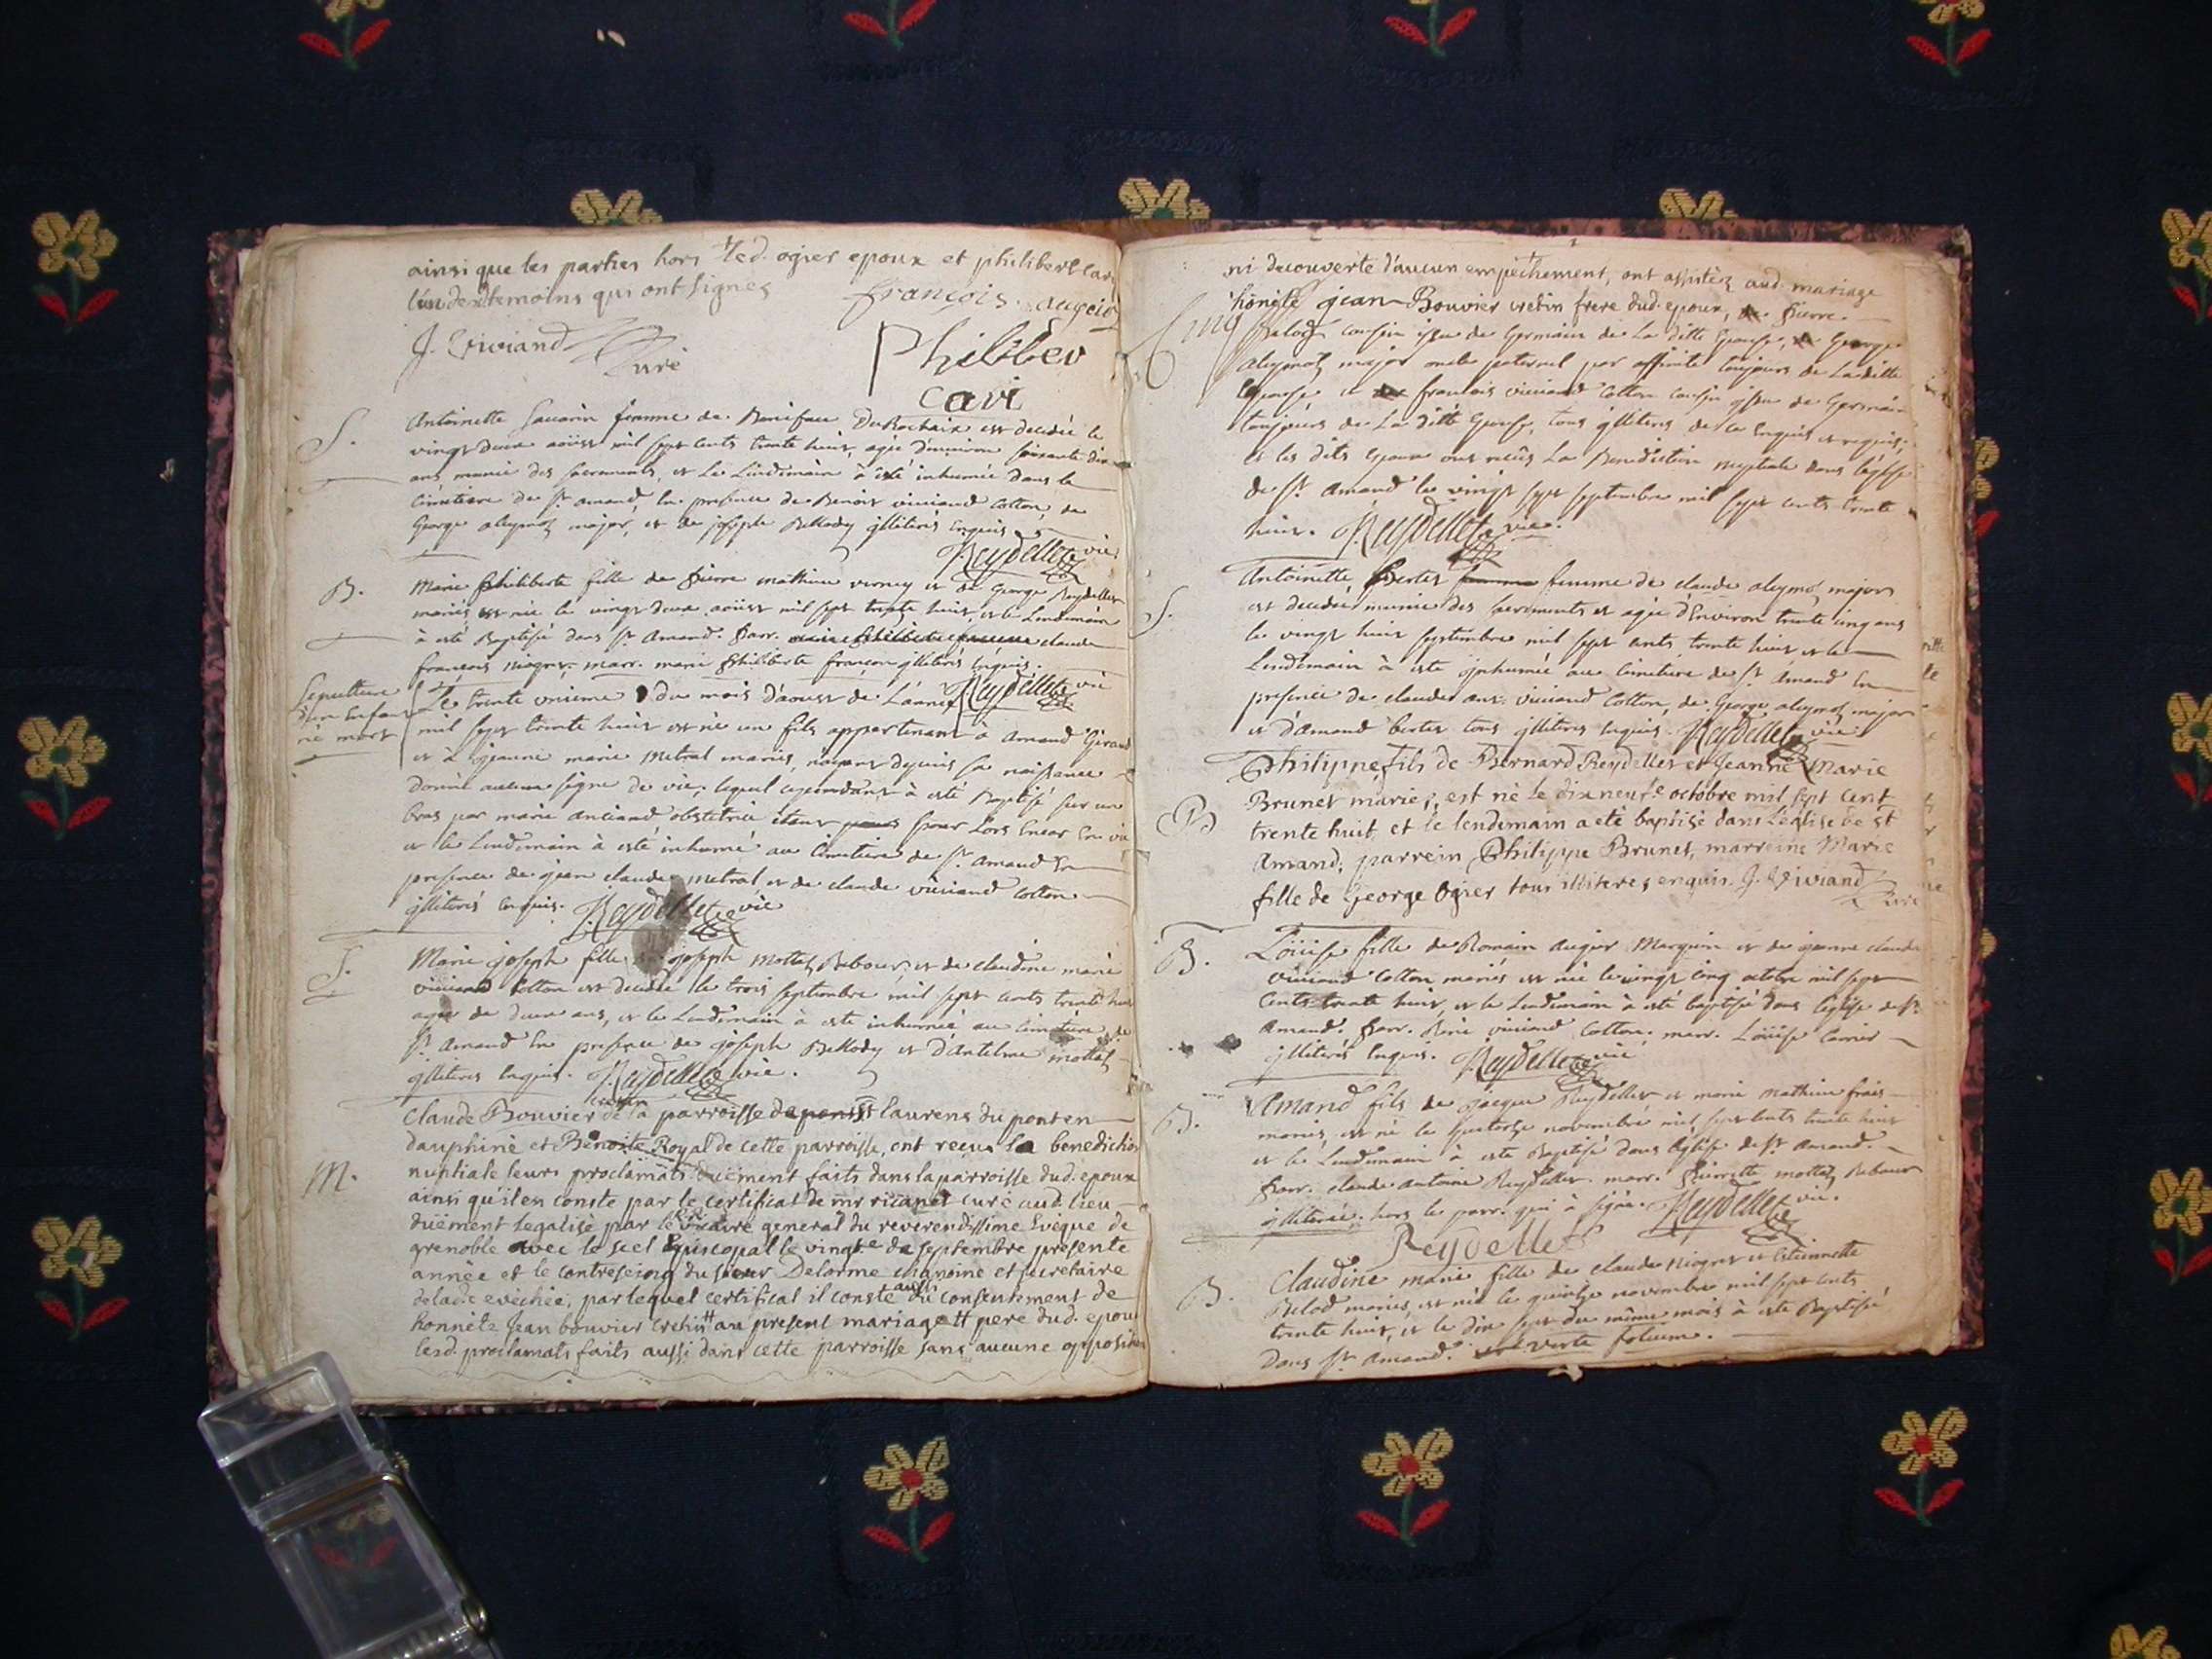 ainsi que les parties hors led. ogier epoux et philibert cari
l'un des temoins qui ont signes françois augeir
J. Viviand Curé
Philiber
cavi
S.
Antoinette femme de Boniface DuRochaix est decedée le
vingt deux aoust mil sept cents trente huit, agée d'environ soixante dix
ans munie des sacrements, et le Lendemain à esté inhumée dans le
Cimetiere de st. amand, En presence de Benoit viviand Cotton, de
George aleymoz major, et de joseph Bellody jlliterés Enquis
Reydellet vic
B.
Marie philiberte fille de pierre mathieu verney et de George Reydellet
mariés, est née le vingt deux aoust mil sept trente huit, et le Lendemain
à esté Baptisée dans st. Amand. parr. claude
françois niogret, marr. marie philiberte françon jlliterés Enquis.
Reydellet vic
Sepulture
d'un Enfant
né mort
Le trente unieme du mois d'aoust de L'année
mil sept trente huit est né un fils appartenant à amand Giraud
et à jeanne marie metral mariés, n'ayant depuis sa naissance
donné aucun signe de vie, lequel cependant à esté Baptisé sur un
bras par marie anciand obstetrice étant pour Lors Encor En vie
et le Lendemain à esté inhumé au Cimetiere de st. Amand En
presence de jean claude metral et de claude viviand cotton
jlliterés Enquis. Reydellet vic
S.
Marie joseph fille de joseph mottet Rebour, et de claudine marie
viviand Cotton est decedée le trois septembre mil sept cents trente huit
agée de deux ans, et le Lendemain à esté inhumée au Cimetiere de
st. Amand En presence de joseph Bellody et d'antelme mottet
jlliterés Enquis. Reydellet vic.
M.
cretin
claude Bouvier de la parroisse de st laurens du pont en
dauphiné et Benoite Royal de cette parroisse, ont reçus la benediction
nuptiale leurs proclamats duëment faits dans la parroisse dud. epoux
ainsi qu'il en conste par le certificat de mr ricanet curé aud. lieu
duëment legalisé par le vicaire general du reverendissime Evêque de
grenoble avec le scel Episcopal le vingt.e de septembre presente
année et le contreseing du sieur Delorme chanoine et secretaire
delade evechée, par lequel certificat il conste aussi du consentement de
honnete Jean bouvier cretin # au present mariage # pere dud. epoux
lesd. proclamats faits aussi dans cette parroisse sans aucune opposition
ni decouverte d'aucun empechement, ont assistéz aud. mariage
honeste jean Bouvier cretin frere dud. epoux, pierre
Belod cousin issu de Germain de La ditte Epouse, George
aleymoz major oncle paternel par affinité toujours de La ditte
Epouse et françois viviand Cotton cousin issu de Germain
toujours de La ditte Epouse, tous jlliterés de ce Enquis et requis,
et les dits Epoux ont reçus La Benediction nuptiale dans l'eglise
de st. Amand le vingt sept septembre mil sept cents trente
huit. Reydellet vic.
S.
Antoinette Bertet femme de claude aleymoz major
est decedée munie des sacrements et agée d'Environ trente cinq ans
le vingt huit septembre mil sept cents trente huit et le
Lendemain à esté inhumée au Cimetiere de st. Amand En
presence de claude ant. viviand Cotton, de George aleymoz major
et d'amand bertet tous jlliterés Enquis. Reydellet vic
B
Philippe, fils de Bernard Reydellet et Jeanne Marie
Brunet mariés, est né le dix neuf.e octobre mil sept cent
trente huit et le lendemain a eté baptisé dans L'eglise de st
Amand; parrein Philippe Brunet, marreine Marie
fille de George Ogier tous illiteres enquis. J. Viviand Curé
B.
Loüise fille de Romain augier Marquin et de jeanne claude
viviand Cotton mariés est née le vingt cinq octobre mil sept
Cents trente huit, et le Lendemain à esté baptisée dans l'eglise de st.
Amand. parr. René viviand Cotton, marr. Loüise Carrier
jlliterés Enquis. Reydellet vic
B.
Amand fils de jacque Reydellet et marie mathieu frais
mariés, est né le quatorze novembre mil sept cents trente huit
et le Lendemain à esté Baptisé dans l'eglise de st. Amand.
parr. claude antoine Reydellet, marr. pierrette mottet Rebour
jlliterée; hors le parr. qui à signé. Reydellet vic.
Reydellet
B.
Claudine marie fille de claude niogret et Etiennette
Belod mariés, est née le quinze novembre mil sept cents
trente huit, et le dix sept du même mois à esté Baptisée
dans st. Amand. verte folium.